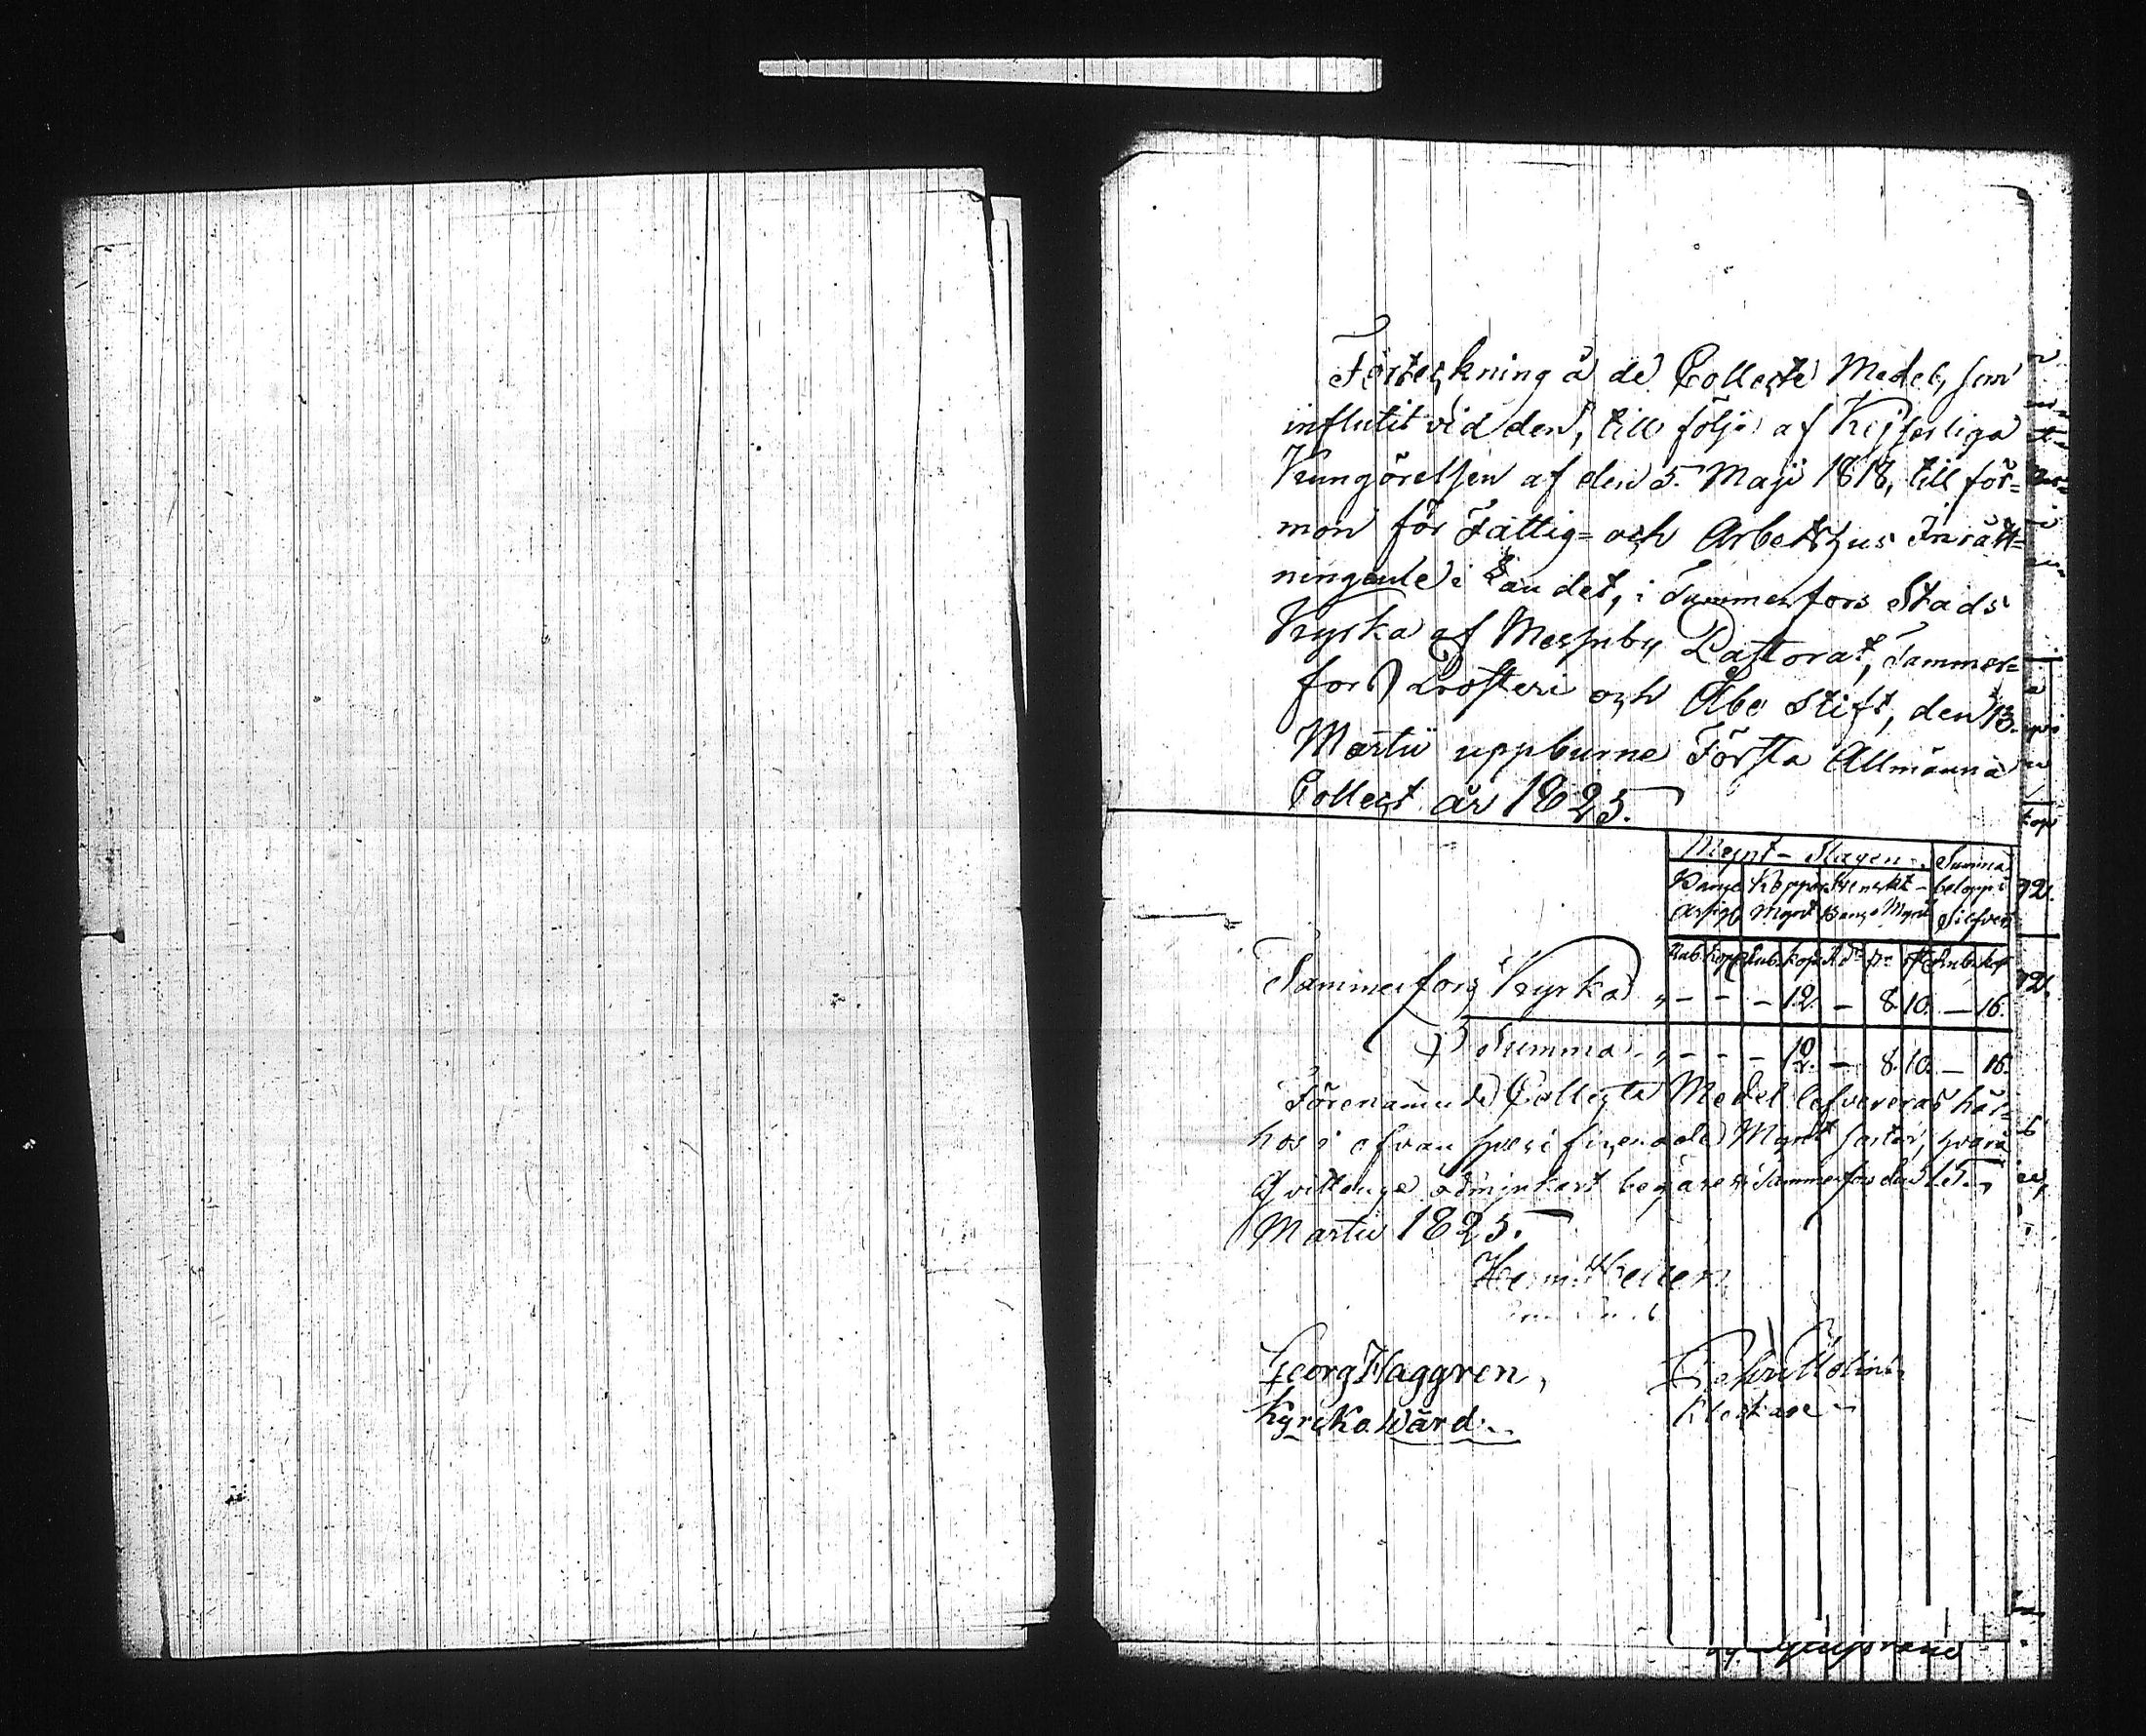 Förteckning å de Collecte Medel, som
influtit vid den, till följe af Kejserliga
Kungörelsen af den 5. Maji 1818, till för=
mon för Fattig= och Arbetshus Inrätt=
ningarne i Landet, i Tammerfors Stads
Kyrka af Messuby Pastorat, Tammer=
fors Prosteri och Åbo Stift, den 13.
Martii uppburne Första Allmänna
Collect år 1825.
Mynt-Slagen Summa
Banco Koppar Svenskt beloppi
Assign Mynt Banco Mynt Silfver
Rub. Kop. Rub. Kop. Rd. sk. rst. Rub. Kop.
Tammerfors Kyrka „ – – – 12. – 8. 10. – 16.
Summa „ – – – 12. – 8. 10. – 16.
Förenämnde Collecta Medel lefvereras här=
hos i ofvan specificerade Mynt sorter, hvarå
qvittence ödmjukast begäres. Tammerfors den 15.
Martii 1825.
Georg Haggren,
Kyrko Wärd.
Klockare